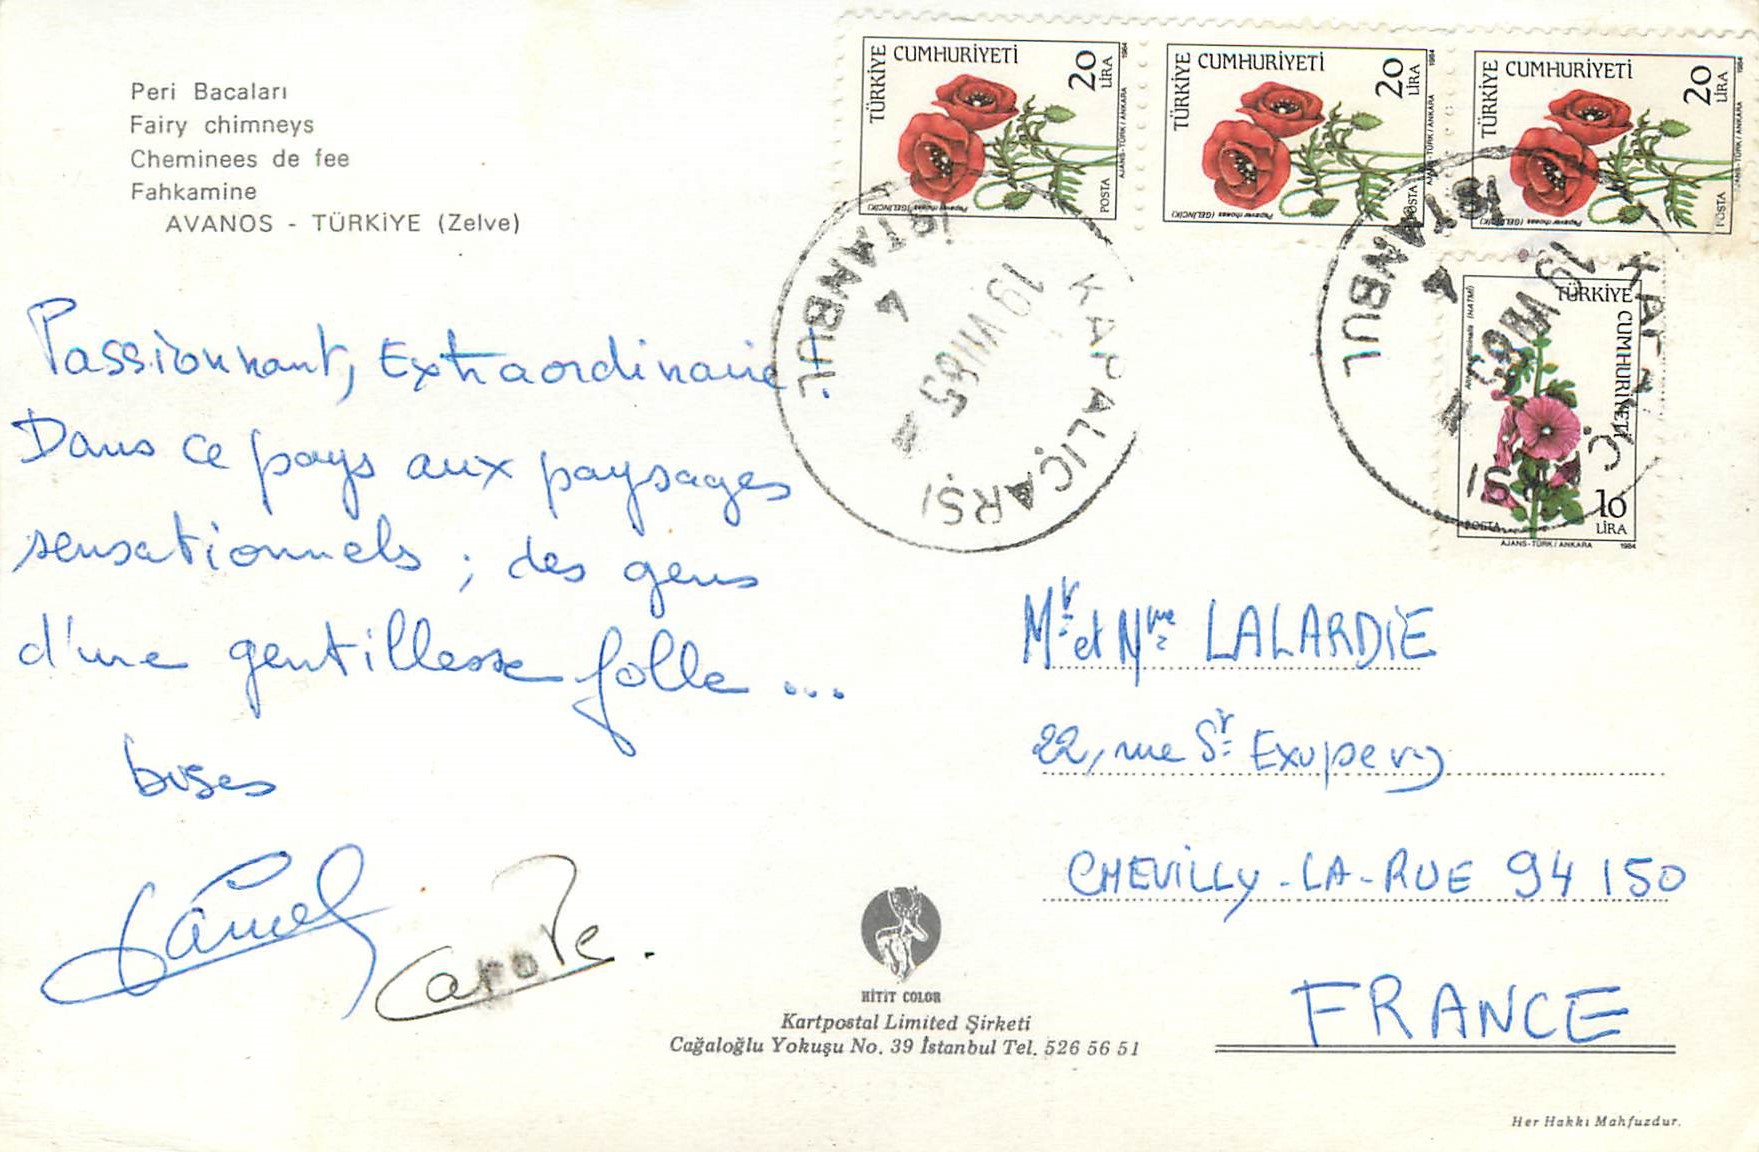 Peri Bacaları
Fairy chimneys
Cheminees de fee
Fahkamine
AVANOS - TÜRKİYE (Zelve)
TÜRKİYE CUMHURİYETİ 20 LİRA
POSTA
AJANS-TÜRK / ANKARA 1984
Papaver rhoeas (GELİNCİK)
TÜRKİYE CUMHURİYETİ 20 LİRA
POSTA
AJANS-TÜRK / ANKARA 1984
Papaver rhoeas (GELİNCİK)
TÜRKİYE CUMHURİYETİ 20 LİRA
POSTA
AJANS-TÜRK / ANKARA 1984
Papaver rhoeas (GELİNCİK)
TÜRKİYE CUMHURİYETİ
(HATMİ)
10 LİRA
POSTA
AJANS-TÜRK / ANKARA 1984
KAPALIÇARŞI
19 VII 85
4
İSTANBUL
KAPALIÇARŞI
19 VII 85
4
İSTANBUL
Passionnant, Extraordinaire!
Dans ce pays aux paysages
sensationnels ; des gens
d'une gentillesse folle ...
bises
Carole.
Mr et Mme LALARDIE
22, rue St Exupery
CHEVILLY-LA-RUE 94 150
FRANCE
HİTİT COLOR
Kartpostal Limited Şirketi
Cağaloğlu Yokuşu No. 39 İstanbul Tel. 526 56 51
Her Hakkı Mahfuzdur.